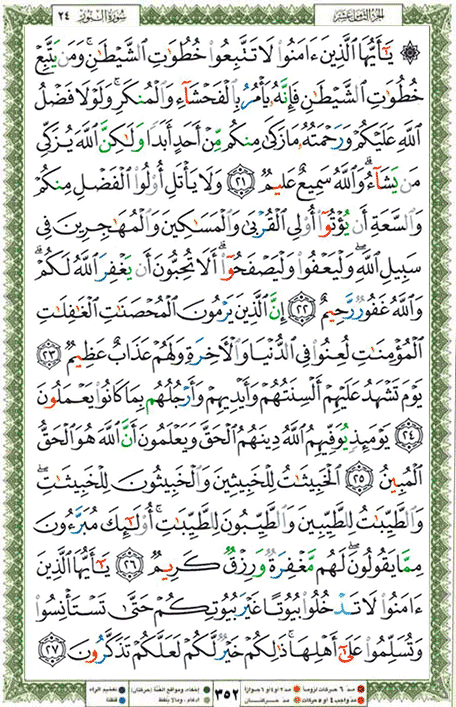 الجزء الثامن عشر سورة النور ٢٤
۞ يَٰٓأَيُّهَا ٱلَّذِينَ ءَامَنُوا۟ لَا تَتَّبِعُوا۟ خُطُوَٰتِ ٱلشَّيْطَٰنِ ۚ وَمَن يَتَّبِعْ
خُطُوَٰتِ ٱلشَّيْطَٰنِ فَإِنَّهُۥ يَأْمُرُ بِٱلْفَحْشَآءِ وَٱلْمُنكَرِ ۚ وَلَوْلَا فَضْلُ
ٱللَّهِ عَلَيْكُمْ وَرَحْمَتُهُۥ مَا زَكَىٰ مِنكُم مِّنْ أَحَدٍ أَبَدًا وَلَٰكِنَّ ٱللَّهَ يُزَكِّى
مَن يَشَآءُ ۗ وَٱللَّهُ سَمِيعٌ عَلِيمٌ ٢١ وَلَا يَأْتَلِ أُو۟لُوا۟ ٱلْفَضْلِ مِنكُمْ
وَٱلسَّعَةِ أَن يُؤْتُوٓا۟ أُو۟لِى ٱلْقُرْبَىٰ وَٱلْمَسَٰكِينَ وَٱلْمُهَٰجِرِينَ فِى
سَبِيلِ ٱللَّهِ ۖ وَلْيَعْفُوا۟ وَلْيَصْفَحُوٓا۟ ۗ أَلَا تُحِبُّونَ أَن يَغْفِرَ ٱللَّهُ لَكُمْ ۗ
وَٱللَّهُ غَفُورٌ رَّحِيمٌ ٢٢ إِنَّ ٱلَّذِينَ يَرْمُونَ ٱلْمُحْصَنَٰتِ ٱلْغَٰفِلَٰتِ
ٱلْمُؤْمِنَٰتِ لُعِنُوا۟ فِى ٱلدُّنْيَا وَٱلْءَاخِرَةِ وَلَهُمْ عَذَابٌ عَظِيمٌ ٢٣
يَوْمَ تَشْهَدُ عَلَيْهِمْ أَلْسِنَتُهُمْ وَأَيْدِيهِمْ وَأَرْجُلُهُم بِمَا كَانُوا۟ يَعْمَلُونَ
٢٤ يَوْمَئِذٍ يُوَفِّيهِمُ ٱللَّهُ دِينَهُمُ ٱلْحَقَّ وَيَعْلَمُونَ أَنَّ ٱللَّهَ هُوَ ٱلْحَقُّ
ٱلْمُبِينُ ٢٥ ٱلْخَبِيثَٰتُ لِلْخَبِيثِينَ وَٱلْخَبِيثُونَ لِلْخَبِيثَٰتِ ۖ
وَٱلطَّيِّبَٰتُ لِلطَّيِّبِينَ وَٱلطَّيِّبُونَ لِلطَّيِّبَٰتِ ۚ أُو۟لَٰٓئِكَ مُبَرَّءُونَ
مِمَّا يَقُولُونَ ۖ لَهُم مَّغْفِرَةٌ وَرِزْقٌ كَرِيمٌ ٢٦ يَٰٓأَيُّهَا ٱلَّذِينَ
ءَامَنُوا۟ لَا تَدْخُلُوا۟ بُيُوتًا غَيْرَ بُيُوتِكُمْ حَتَّىٰ تَسْتَأْنِسُوا۟
وَتُسَلِّمُوا۟ عَلَىٰٓ أَهْلِهَا ۚ ذَٰلِكُمْ خَيْرٌ لَّكُمْ لَعَلَّكُمْ تَذَكَّرُونَ ٢٧
مد ٦ حركات لزوماً مد ٢ او ٤ او ٦ جوازاً إخفاء، ومواقع الغنّة (حركتان) تفخيم الراء
مد واجب ٤ او ٥ حركات مد حركتان ٣٥٢ إدغام، وما لا يلفظ قلقلة